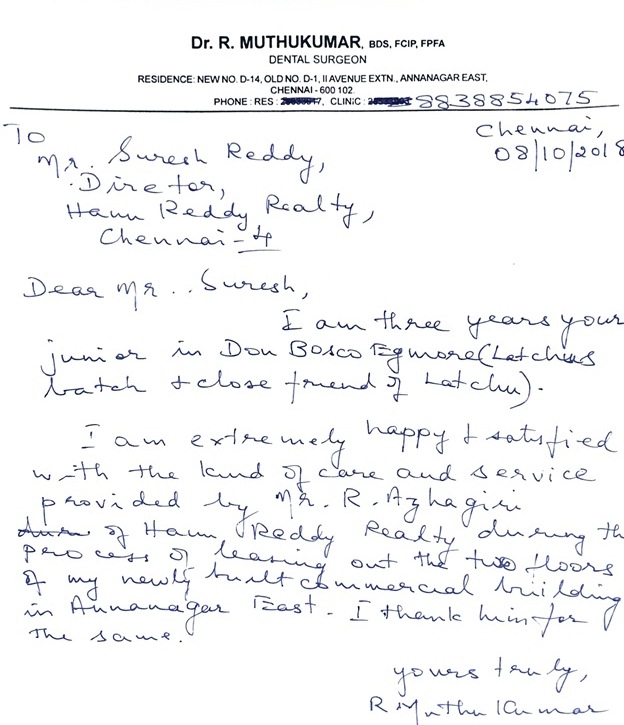 Dr. R. MUTHUKUMAR, BDS, FCIP, FPFA
DENTAL SURGEON
RESIDENCE: NEW NO. D-14, OLD NO. D-1, II AVENUE EXTN., ANNANAGAR EAST,
CHENNAI - 600 102.
PHONE : RES : CLINIC : 8838854075
Chennai,
08/10/2018
To
Mr. Suresh Reddy,
Director,
Hanu Reddy Realty,
Chennai-4
Dear Mr.. Suresh,
I am three years your
junior in Don Bosco Egmore (Latchus
batch & close friend of Latchu).
I am extremely happy & satisfied
with the kind of care and service
provided by Mr. R. Azhagiri
of Hanu Reddy Realty during th
process of leasing out the two floors
of my newly built commercial building
in Annanagar East. I thank him for
the same.
yours truly,
R Muthu Kumar